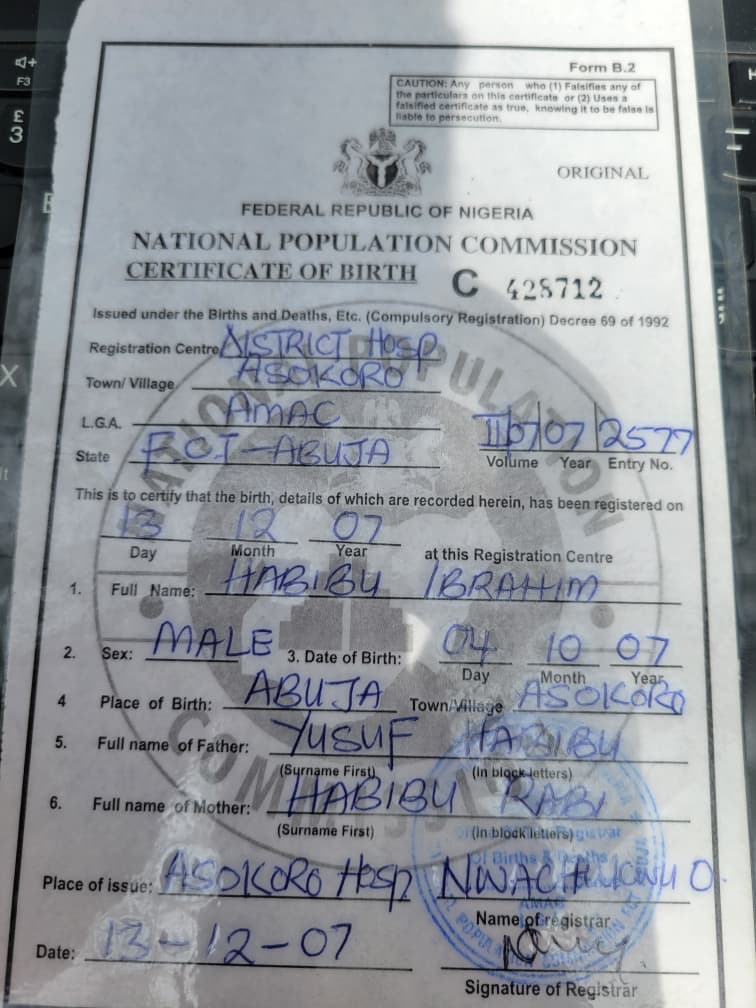 Form B.2
CAUTION: Any person who (1) Falsifies any of
the particulars on this certificate or (2) Uses a
falsified certificate as true, knowing it to be false is
liable to persecution.
ORIGINAL
FEDERAL REPUBLIC OF NIGERIA
NATIONAL POPULATION COMMISSION
CERTIFICATE OF BIRTH C 428712
Issued under the Births and Deaths, Etc. (Compulsory Registration) Decree 69 of 1992
Registration Centre DISTRICT HOSP
Town/ Village ASOKORO
L.G.A. AMAC
State F.C.T-ABUJA
07 2577
Volume Year Entry No.
This is to certify that the birth, details of which are recorded herein, has been registered on
13 12 07
Day Month Year at this Registration Centre
1. Full Name: HABIBU IBRAHIM
2. Sex: MALE 3. Date of Birth: 04 10 07
Day Month Year
4 Place of Birth: ABUJA Town/Village ASOKORO
5. Full name of Father: YUSUF HABIBU
(Surname First) (In block letters)
6. Full name of Mother: HABIBU RABI
(Surname First) (In block letters)
Place of issue: ASOKORO HOSP NWACHUKWU O.
Name of registrar
Date: 13-12-07
Signature of Registrar
NATIONAL POPULATION COMMISSION
Registrar
Of Births & Deaths
AMAC
F3
£
3
X